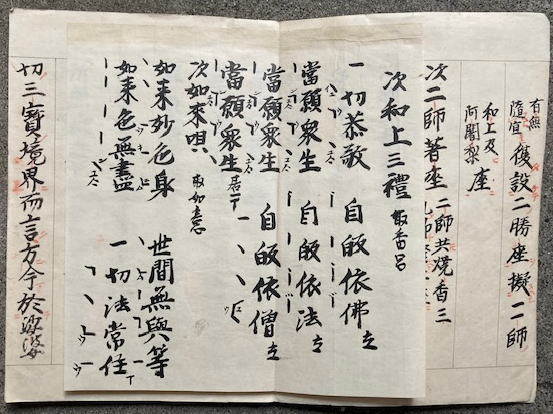 有無
隨宜
復設二勝座擬二師
和上及
阿闍梨
座
次二師著座 二師共燒香三
次和上三禮 取香呂
一切恭敬 自皈依佛 立
當願衆生 自皈依法 立
當願衆生 自皈依僧 立
當願衆生 居
次如来唄 取如意
如来妙色身 世間無與等
如来色無盡 一切法常住
切三寶境界而言方今於娑婆